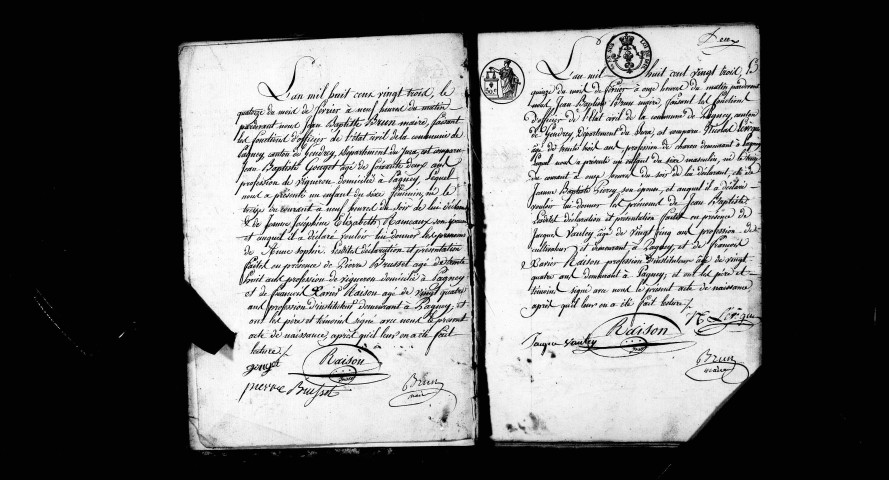 L'an mil huit cent vingt trois, le
quatorze du mois de fevrier à neuf heures du matin
pardevant nous Jean Baptiste Brun maire, faisant
les fonctions d'officier de l'état civil de la commune de
Pagney, canton de Gendrey, département du Jura, est comparu
Jean Baptiste Gouget agé de soixante deux ans
profession de vigneron domicilié à Pagney, lequel
nous a présenté un enfant du sexe féminin, né le
treize du courant à neuf heures du soir de lui déclarant
& de Jeanne Joséphine Elizabeth Rameaux son épouse
et auquel il a déclaré vouloir lui donner les prenoms
de sophie. Lesdites déclaration et présentation
faites en présence de Pierre Brusset agé de trente
huit ans profession de vigneron domicilié à Pagney
et de francois Xavier Raison agé de vingt quatre
ans profession d'instituteur demeurant à Pagney, et
ont les père et témoins signé avec nous le présent
acte de naissance, après qu'il leur en a été fait
lecture /.
gouget
Raison
pierre Brusset
Brun
maire
Deux
L'an mil huit cent vingt trois, le
quinze du mois de fevrier à onze heures du matin pardevant
nous Jean Baptiste Brun maire faisant les fonctions
d'officier de l'état civil de la commune de Pagney, canton
de Gendrey département du Jura, est comparu Nicolas
agé de trente huit ans profession de demeurant à Pagney
lequel nous a présenté un enfant du sexe masculin, né le treize
du courant à onze heures du soir de lui déclarant, et de
Jeanne Baptiste son épouse, et auquel il a déclaré
vouloir lui donner les prénoms de Jean Baptiste
Lesdites déclaration et présentation faites en présence de
Jacques Vauley âgé de vingt cinq ans profession de
cultivateur et demeurant à Pagney, et de françois
Xavier Raison profession d'instituteur âgé de vingt
quatre ans demeurant à Pagney, et ont les père et
témoins signé avec nous le présent acte de naissance
après qu'il leur en a été fait lecture /.
Raison
Jacques Vauley
Brun
maire